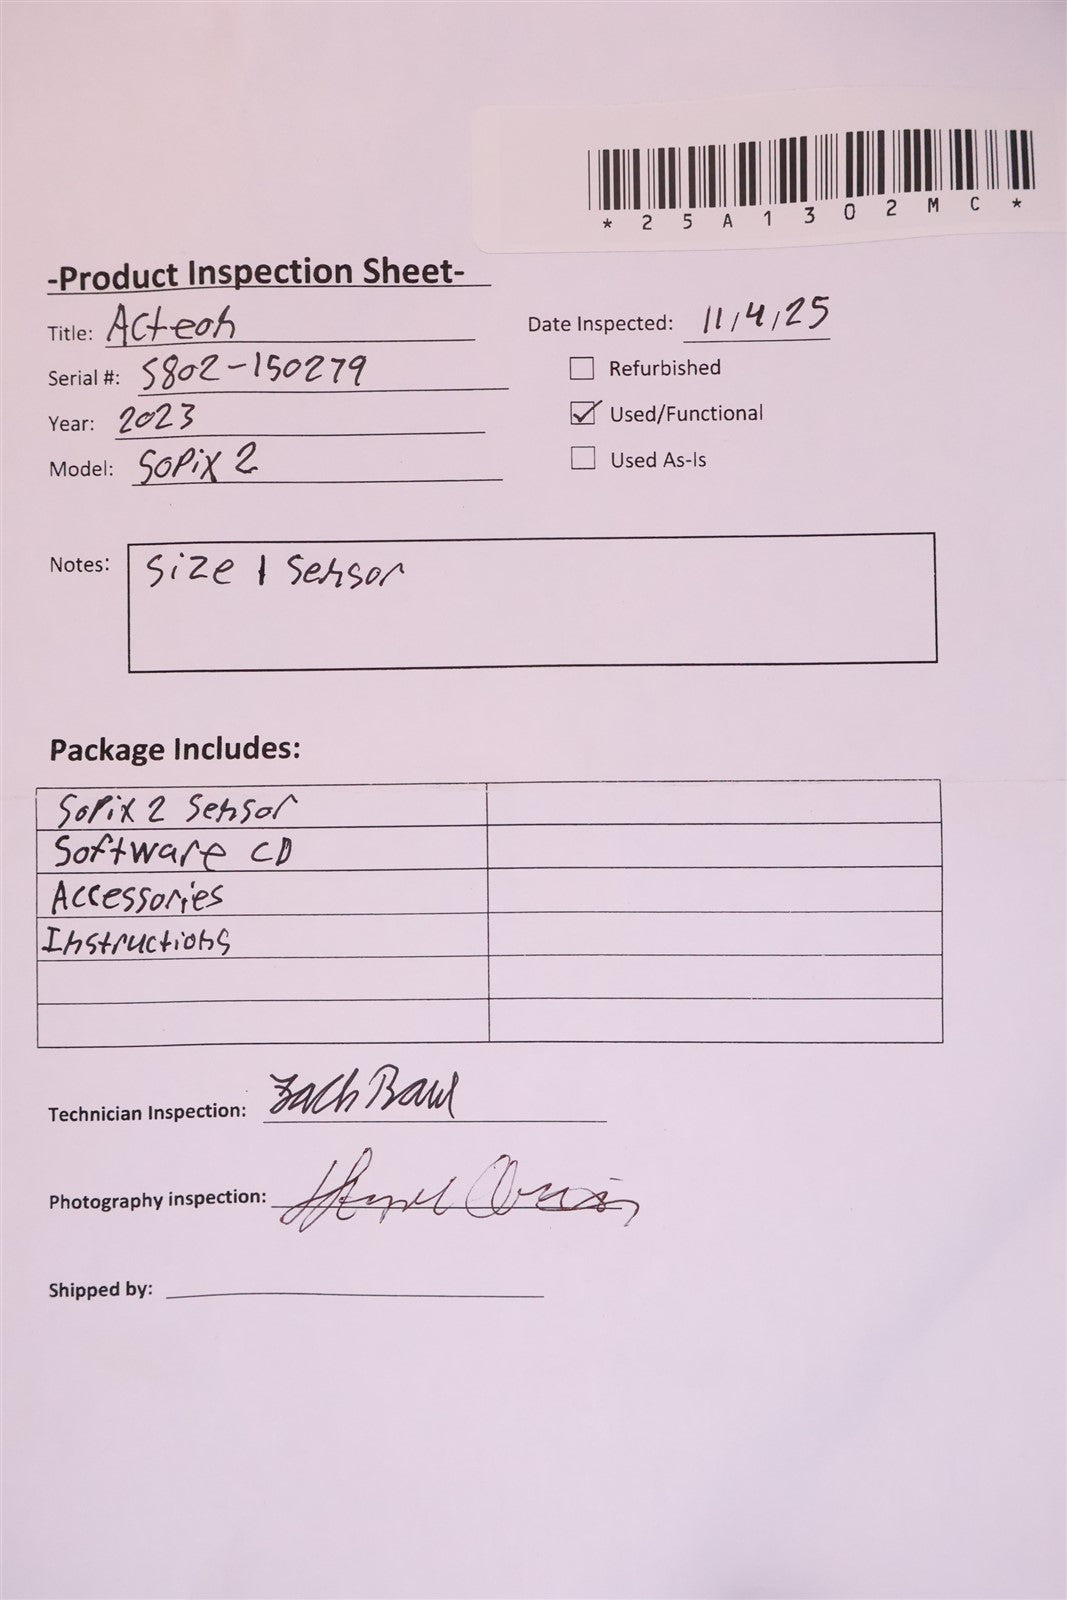 *25A1302MC*
-Product Inspection Sheet-
Title: Acteon
Date Inspected: 11/4/25
Serial #: S802-150279
Refurbished
Year: 2023
Used/Functional
Model: SOPiX 2
Used As-Is
Notes: Size 1 Sensor
Package Includes:
SoPix 2 Sensor
Software CD
Accessories
Instructions
Technician Inspection: Zach
Photography inspection:
Shipped by: